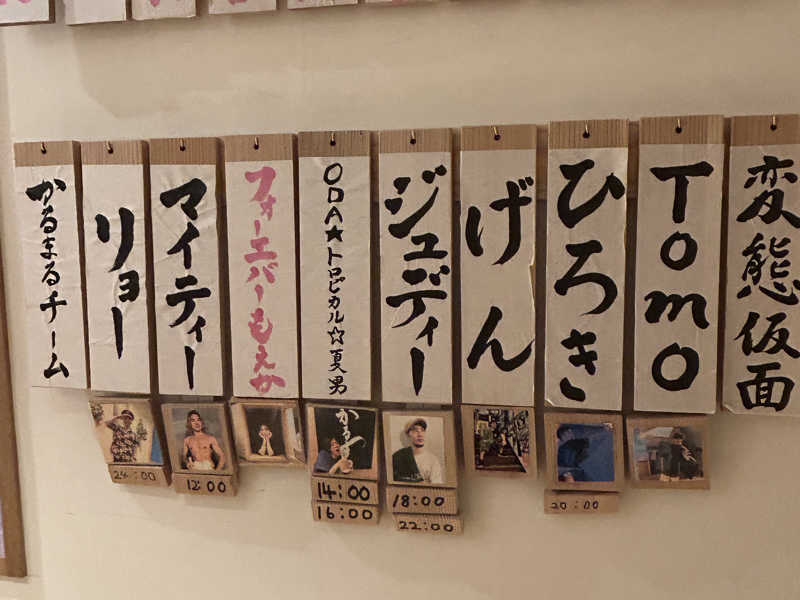 変態仮面
Tomo
ひろき
げん
ジュディー
ODA★トロピカル☆夏男
フォーエバーもえか
マイティー
リョー
かるまるチーム
24:00
12:00
14:00
16:00
18:00
22:00
20:00